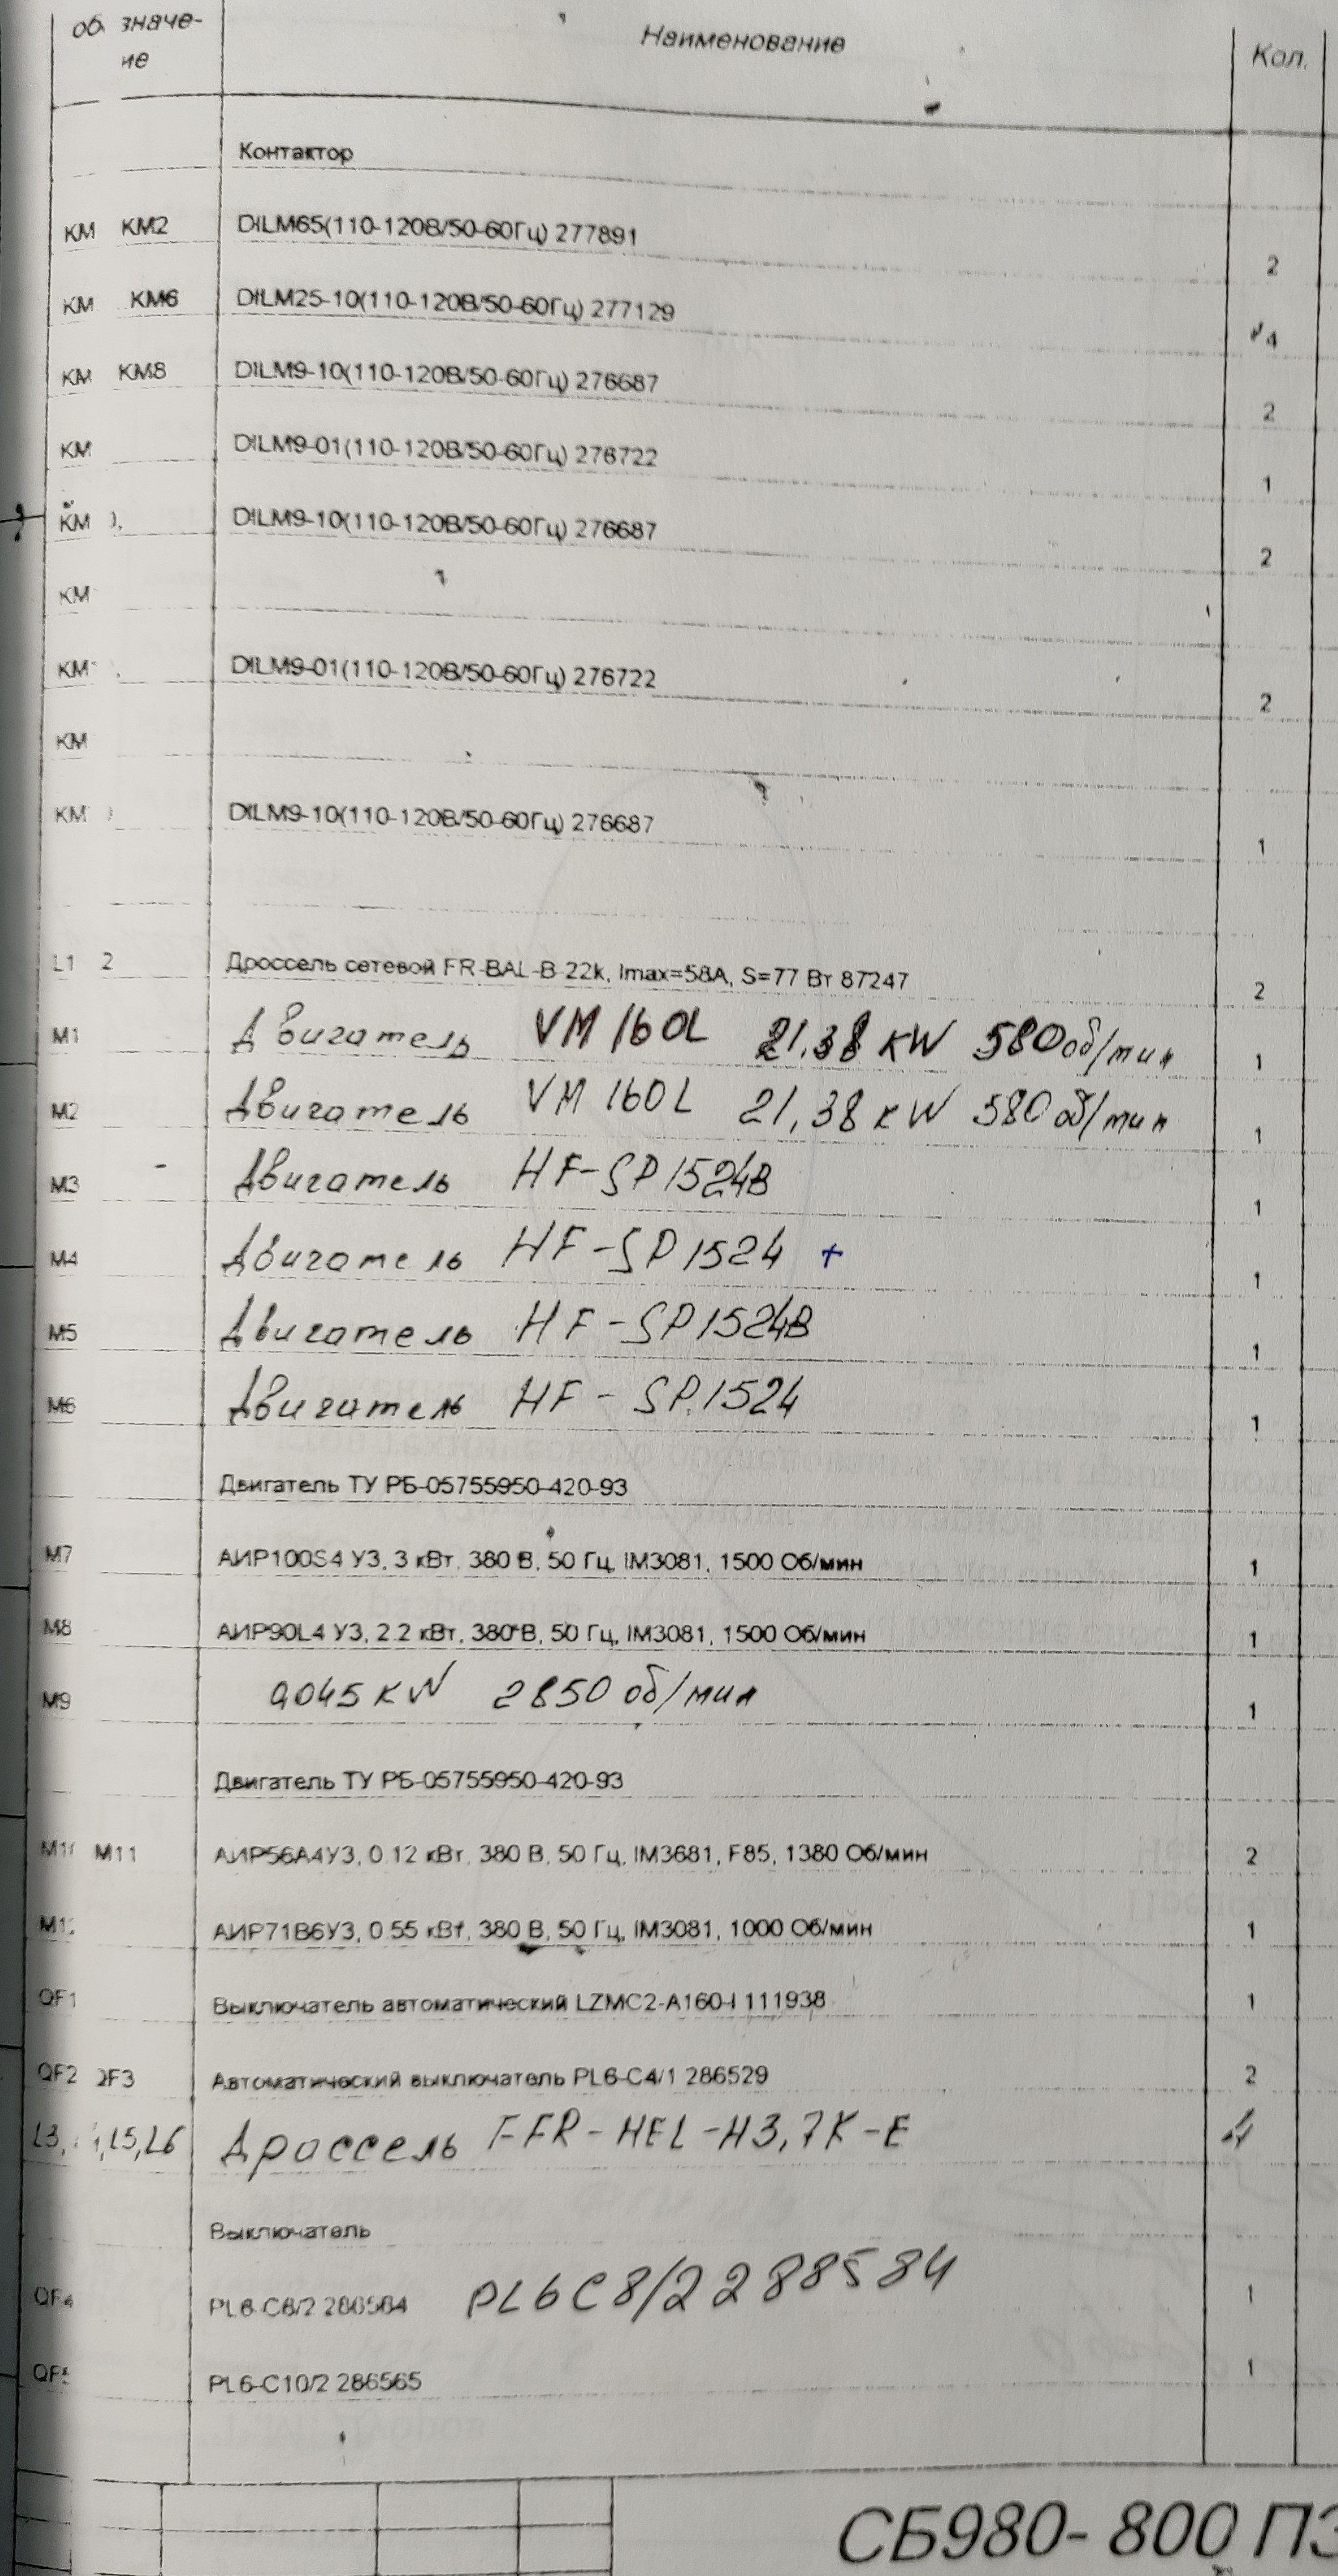 значе- Наименование Кол.
ие
Контактор
КМ КМ2 DILM65(110-120В/50-60Гц) 277891 2
КМ КМ6 DILM25-10(110-120В/50-60Гц) 277129 4
КМ КМ8 DILM9-10(110-120В/50-60Гц) 276687 2
КМ DILM9-01(110-120В/50-60Гц) 276722 1
КМ DILM9-10(110-120В/50-60Гц) 276687 2
КМ
КМ DILM9-01(110-120В/50-60Гц) 276722 2
КМ
КМ DILM9-10(110-120В/50-60Гц) 276687 1
L1 2 Дроссель сетевой FR-BAL-B-22k, Imax=58A, S=77 Вт 87247 2
М1 Двигатель VM 160L 21,38 KW 580 об/мин 1
М2 Двигатель VM 160L 21,38 KW 580 об/мин 1
М3 Двигатель HF-SP1524B 1
М4 Двигатель HF-SP1524 + 1
М5 Двигатель HF-SP1524B 1
М6 Двигатель HF-SP.1524 1
Двигатель ТУ РБ-05755950-420-93
М7 АИР100S4 У3, 3 кВт, 380 В, 50 Гц, IM3081, 1500 Об/мин 1
М8 АИР90L4 У3, 2.2 кВт, 380 В, 50 Гц, IM3081, 1500 Об/мин 1
М9 0,045 KW 2850 об/мин 1
Двигатель ТУ РБ-05755950-420-93
М1 М11 АИР56А4У3, 0.12 кВт, 380 В, 50 Гц, IM3681, F85, 1380 Об/мин 2
М1 АИР71В6У3, 0.55 кВт, 380 В, 50 Гц, IM3081, 1000 Об/мин 1
QF1 Выключатель автоматический LZMC2-A160-I 111938 1
QF2 QF3 Автоматический выключатель PL6-C4/1 286529 2
L3, L5, L6 Дроссель FFR-HEL-H3,7K-E 4
Выключатель
QF4 PL6-C6/2 286564 PL6C8/2 288584 1
QF PL6-C10/2 286565 1
СБ980-800 ПЭ